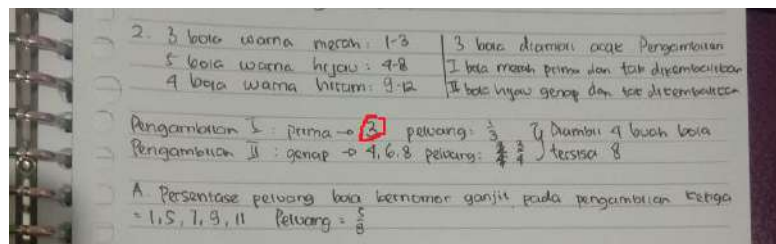 2. 3 bola warna merah : 1-3
5 bola warna hijau : 4-8
4 bola warna hitam : 9-12
3 bola diambil acak Pengambilan
I bola merah prima dan tak dikembalikan
II bola hijau genap dan tak dikembalikan
Pengambilan I : prima → 2 peluang : 1/3
Pengambilan II : genap → 4, 6, 8 peluang : 3/4
Diambil 4 buah bola
tersisa 8
A. Persentase peluang bola bernomor ganjil pada pengambilan ketiga
= 1, 5, 7, 9, 11 Peluang = 5/8